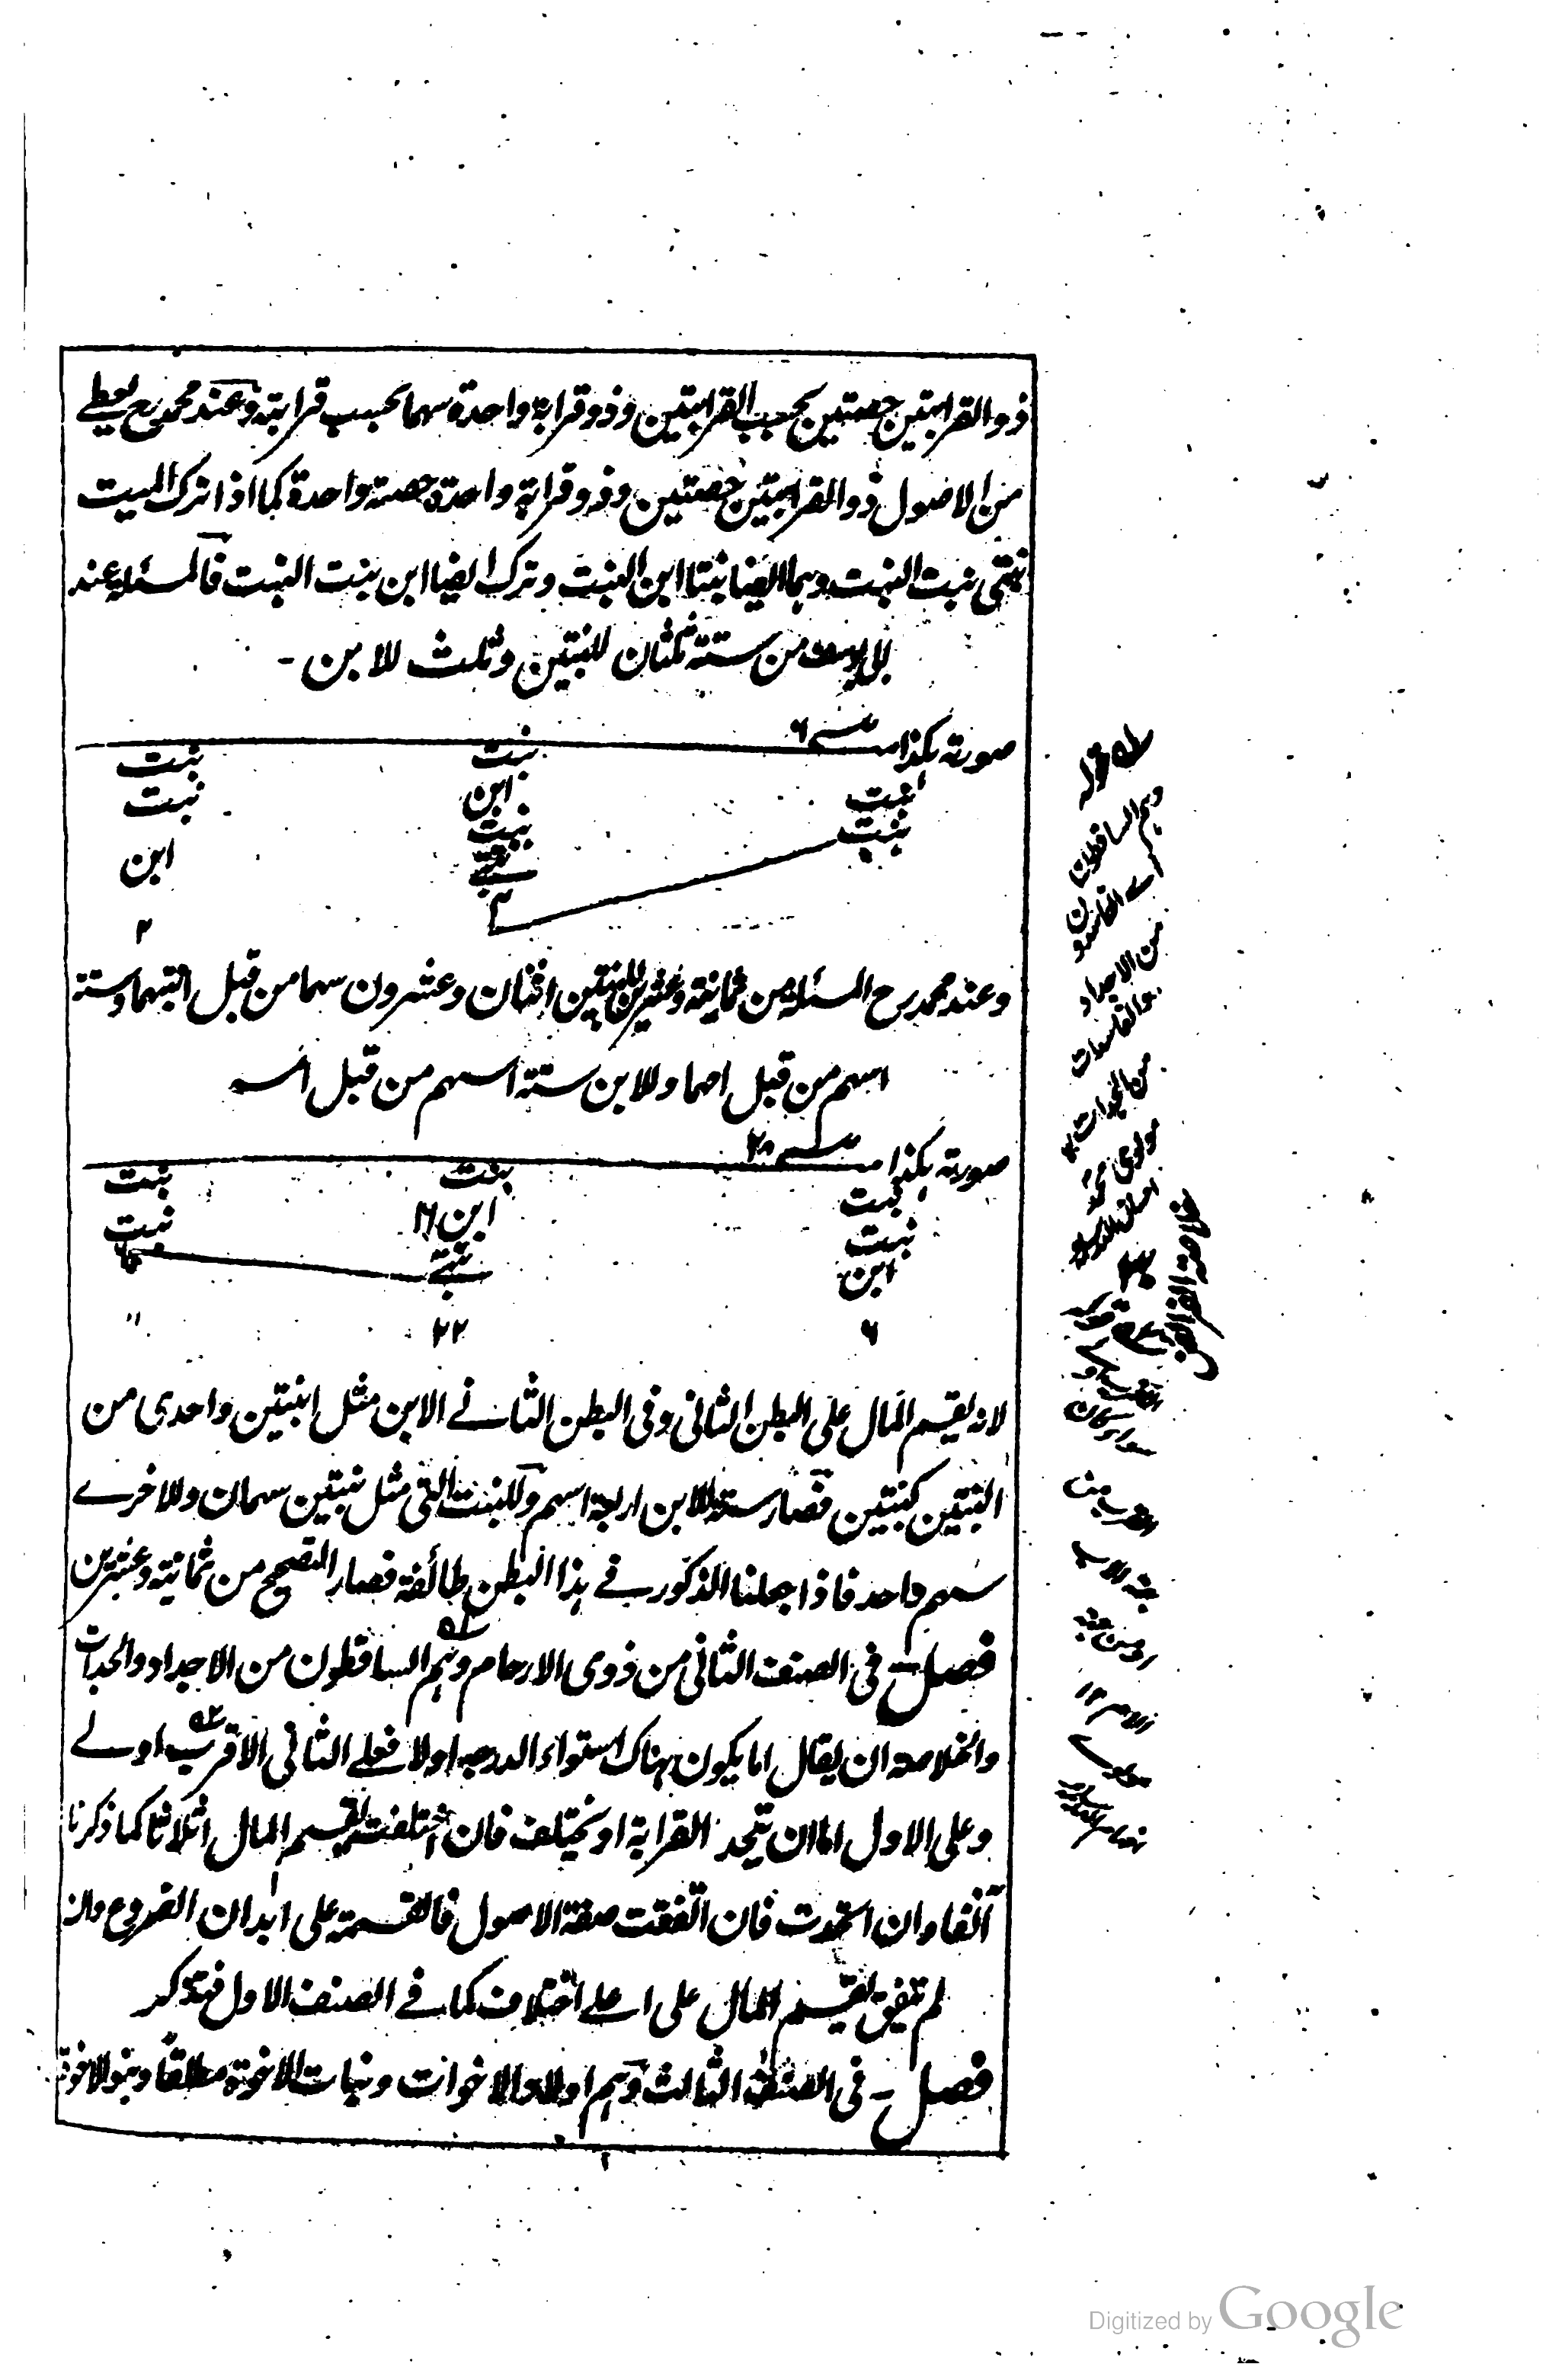 ذو القرابتين حصتين بحسب القرابتين وذو قرابة واحدة سهما بحسب قرابته وعند محمد رح يعطى
من الاصول ذو القرابتين حصتين وذو قرابة واحدة حصة واحدة كما اذا ترك الميت
بنتى بنت البنت وهما ايضا بنتا ابن البنت وترك ايضا ابن بنت البنت فالمسئلة عند
من ستة ثلثان للبنتين وثلث للابن -
صورته هكذا ٦
بنت بنت
بنت ابن بنت
بنت بنت ابن
٤ ٢
وعند محمد رح المسئلة من ثمانية وعشرين للبنتين اثنان وعشرون سهما من قبل ابيهما وستة
اسهم من قبل امهما وللابن ستة اسهم من قبل امه
صورته هكذا ٢٨
بنت بنت بنت
بنت ابن ١٦ بنت
ابن
٦ ٢٢
لانه يقسم المال على البطن الثانى وفى البطن الثانى الابن مثل ابنتين واحدى من
البنتين كبنتين فصار ستة للابن اربعة اسهم وللبنت التى مثل بنتين سهمان وللاخرى
سهم واحد فاذا جعلنا الذكور فى هذا البطن طائفة فصار التصحيح من ثمانية وعشرين
فصل - فى الصنف الثانى من ذوى الارحام وهم الساقطون من الاجداد والجدات
والخلاصة ان يقال اما يكون هناك استواء الدرجة اولا فعلى الثانى الاقرب اولى
وعلى الاول اما ان يتحد القرابة او يختلف فان اختلفت يقسم المال اثلاثا كما ذكرنا
آنفا وان اتحدت فان اتفقت صفة الاصول فالقسمة على ابدان الفروع وان
لم تتفق يقسم المال على اعلى اختلاف كما فى الصنف الاول فتذكر
فصل - فى الصنف الثالث وهم اولاد الاخوات وبنات الاخوة مطلقا وبنو الاخوة
قوله
وهم الساقطون
اى الفاسدون
من الاجداد
والفاسدات
من الجدات ١٢
مولوى محمد
قوله
الاقرب اولى
سواء كان
الاقرب من
جهة الاب
او من جهة
الام ١٢
مولوى
Digitized by Google